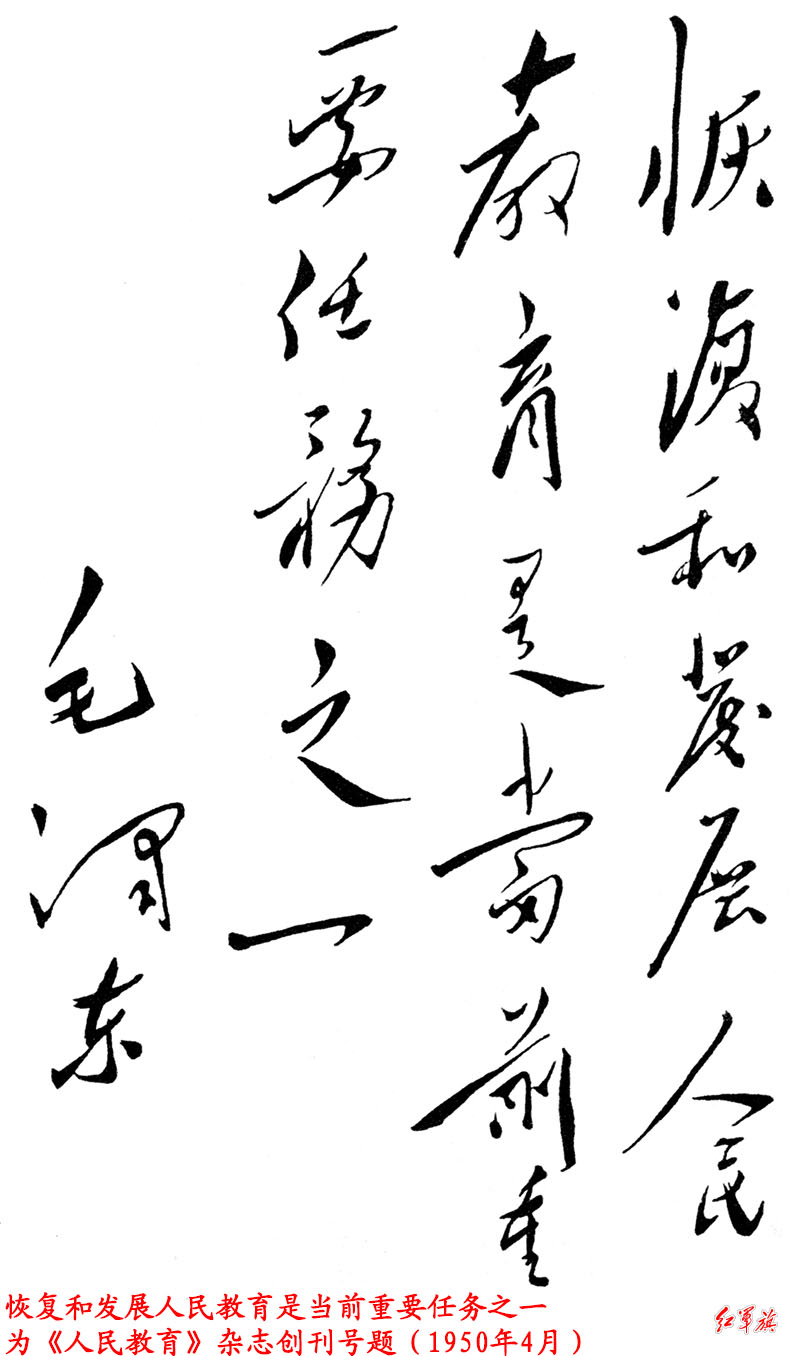 恢復和发展人民
教育是當前重
要任務之一
毛泽东
恢复和发展人民教育是当前重要任务之一
为《人民教育》杂志创刊号题（1950年4月）
红军旗